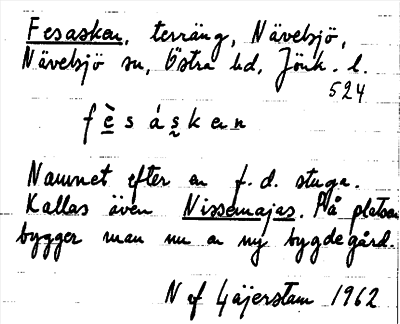 Fesasken, terräng, Nävelsjö,
Nävelsjö sn, Östra hd, Jönk. l.
524
f è s á s k e n
Namnet efter en f. d. stuga.
Kallas även Nissemajas. På platsen
bygger man nu en ny bygdegård.
N ef Gäjerstam 1962